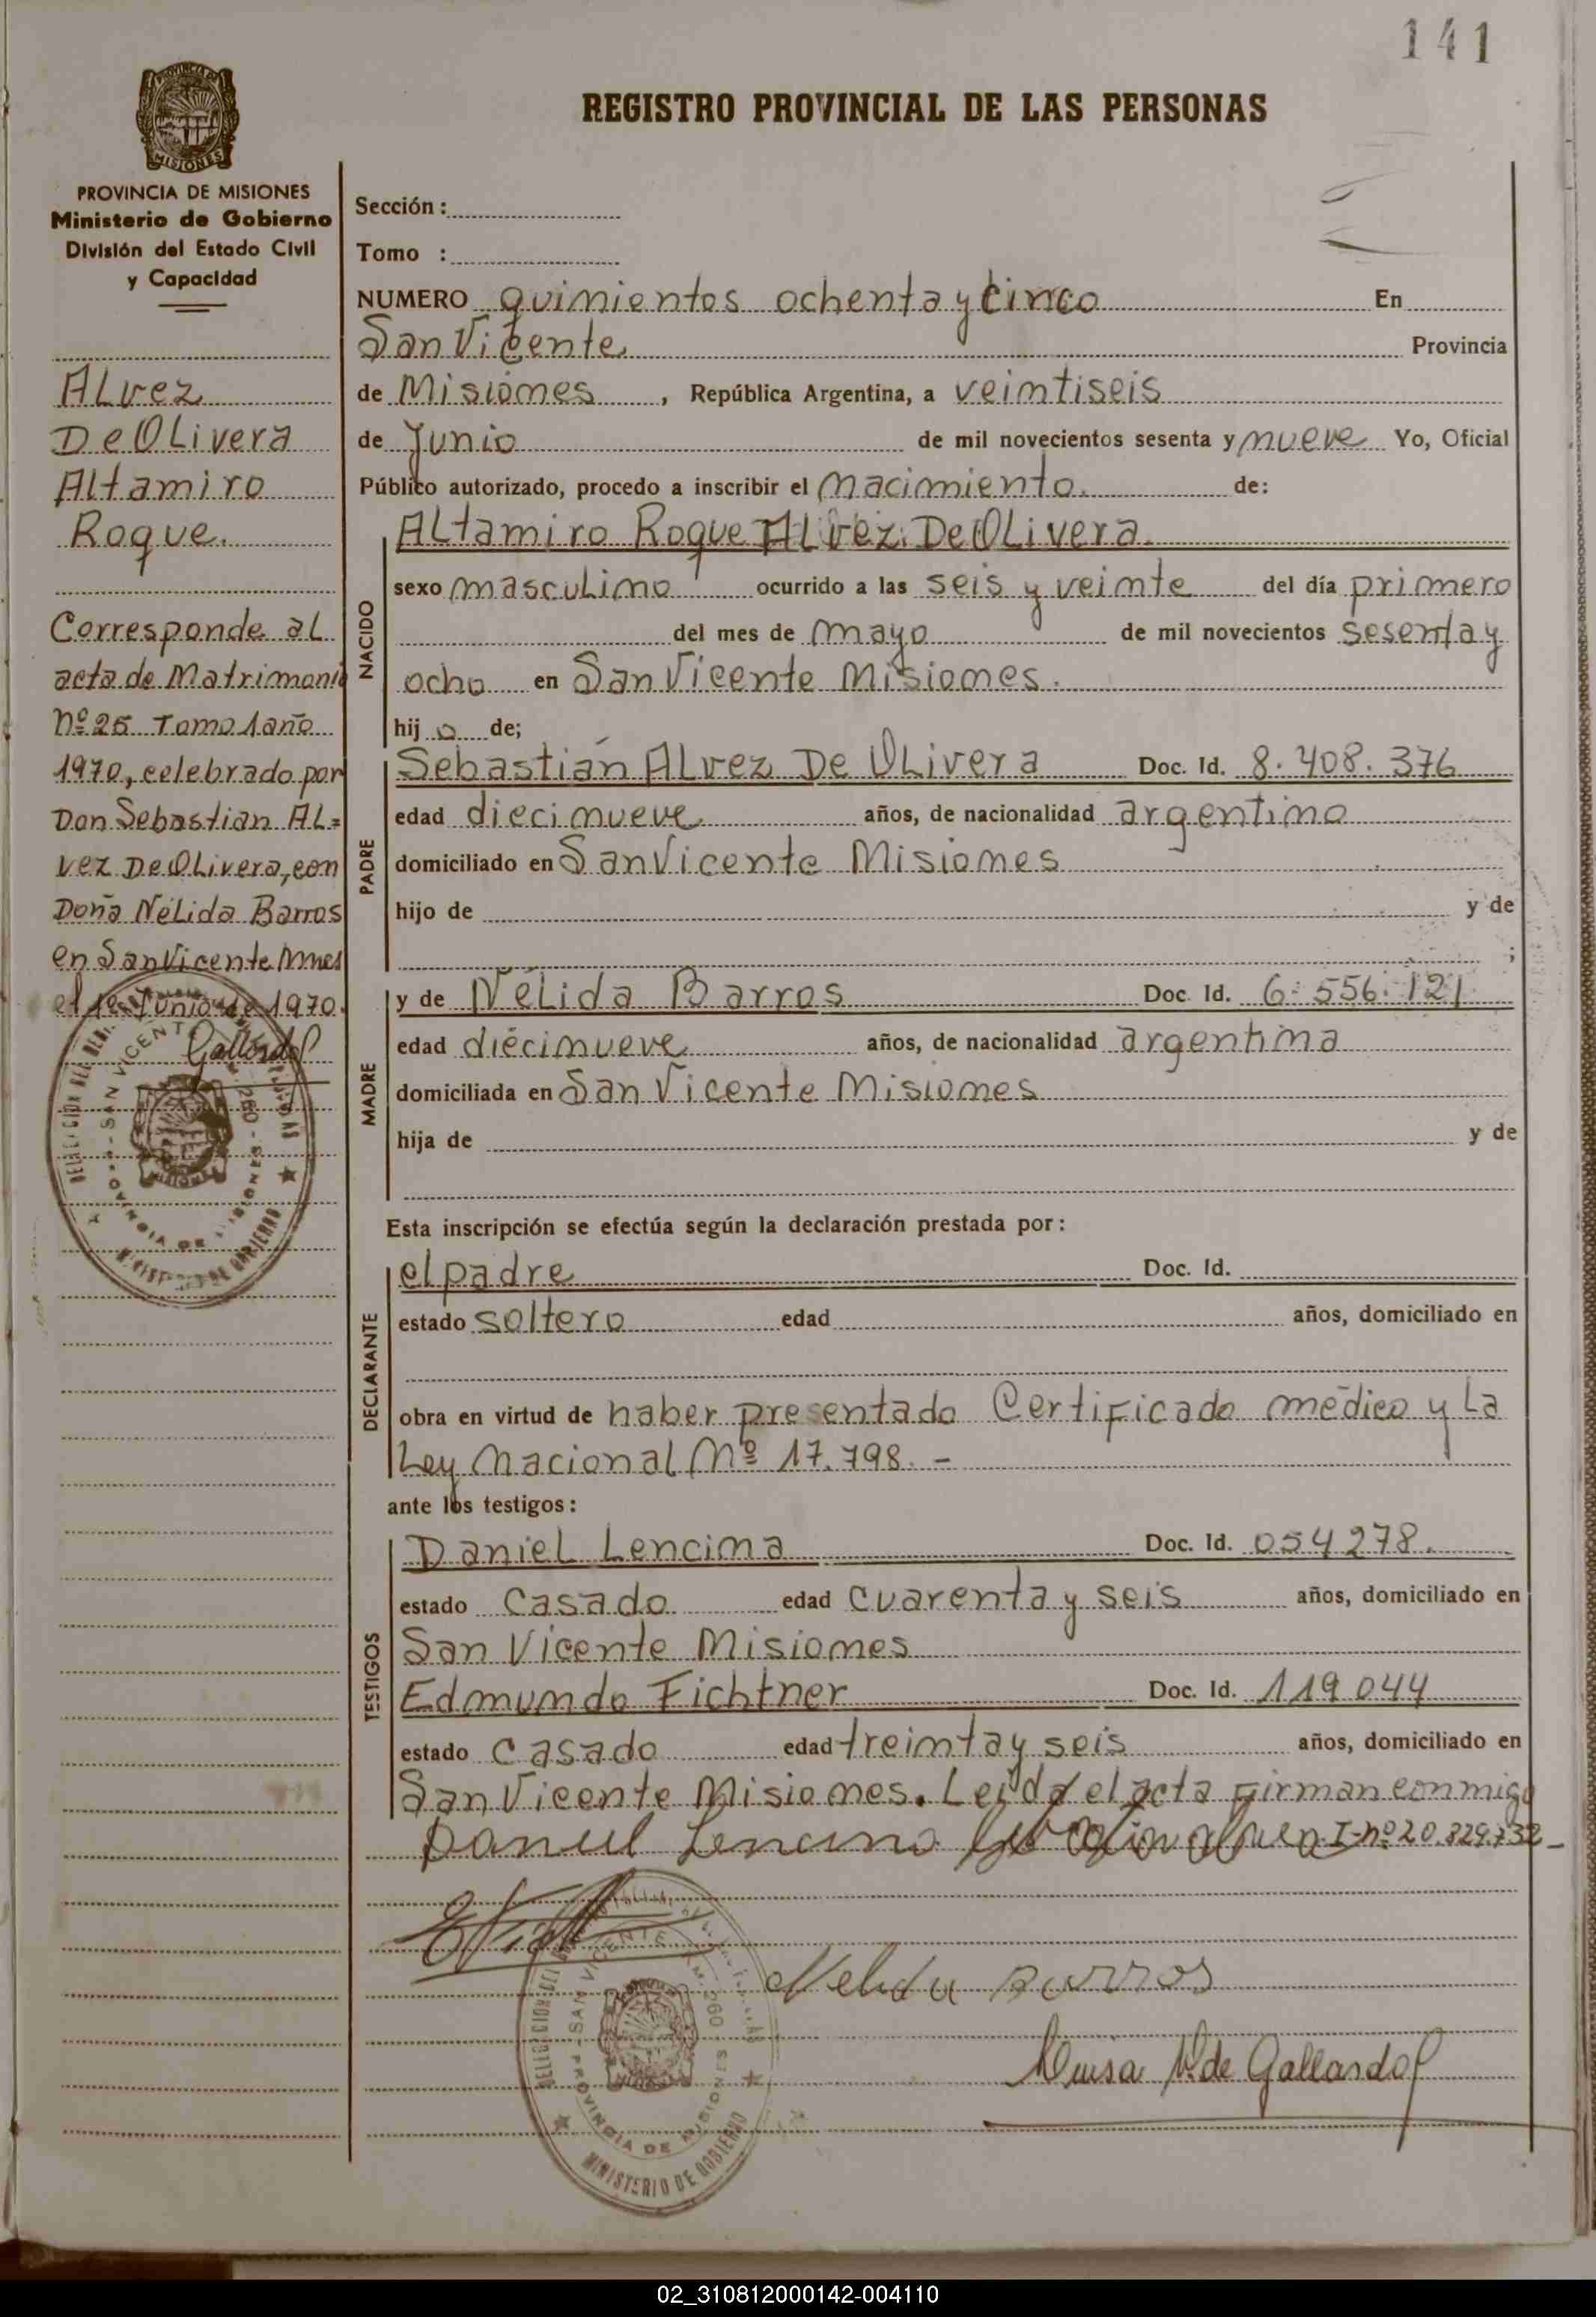 141
REGISTRO PROVINCIAL DE LAS PERSONAS
PROVINCIA DE MISIONES
Ministerio de Gobierno
División del Estado Civil
y Capacidad
Alvez
De Olivera
Altamiro
Roque.
Corresponde al
acta de Matrimonio
Nº 25 Tomo 1 año
1970, celebrado por
Don Sebastian Al=
vez De Olivera, con
Doña Nélida Barros
en San Vicente Mnes
el Junio de 1970.
Gallardo
SAN VICENTE
PROVINCIA DE MISIONES
MINISTERIO DE GOBIERNO
Sección :
Tomo :
NUMERO quinientos ochenta y cinco En
San Vicente Provincia
de Misiones , República Argentina, a veintiseis
de Junio de mil novecientos sesenta y nueve Yo, Oficial
Público autorizado, procedo a inscribir el nacimiento. de:
NACIDO
Altamiro Roque Alvez De Olivera.
sexo masculino ocurrido a las seis y veinte del día primero
del mes de mayo de mil novecientos sesenta y
ocho en San Vicente Misiones.
hij o de;
PADRE
Sebastián Alvez De Olivera Doc. Id. 8.408.376
edad diecinueve años, de nacionalidad argentino
domiciliado en San Vicente Misiones
hijo de y de
;
MADRE
y de Nélida Barros Doc. Id. 6.556.121
edad diécinueve años, de nacionalidad argentina
domiciliada en San Vicente Misiones
hija de y de
Esta inscripción se efectúa según la declaración prestada por :
DECLARANTE
el padre Doc. Id.
estado soltero edad años, domiciliado en
obra en virtud de haber presentado Certificado médico y La
Ley Nacional Nº 17.798. -
ante los testigos :
TESTIGOS
Daniel Lencina Doc. Id. 054278.
estado casado edad cuarenta y seis años, domiciliado en
San Vicente Misiones
Edmundo Fichtner Doc. Id. 119044
estado casado edad treinta y seis años, domiciliado en
San Vicente Misiones. Leida el acta firman conmigo
Daniel Lencina I-nº 20.829.732 -
SAN VICENTE
Nelida Barros
Luisa V. de Gallardo
PROVINCIA DE MISIONES
MINISTERIO DE GOBIERNO
02_310812000142-004110